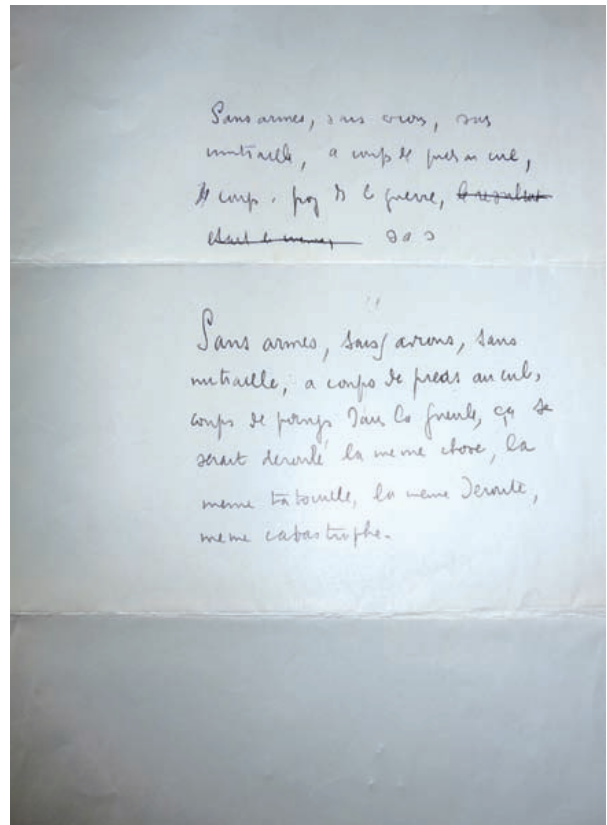 Sans armes, sans avions, sans
mitraille, a coups de pieds au cul,
coups
le resultat
etait le meme,
Sans armes, sans avions, sans
mitraille, a coups de pieds au cul,
coups de poings dans la gueule, ça se
serait deroulé la meme chose, la
meme tatouille, la meme deroute,
meme catastrophe.